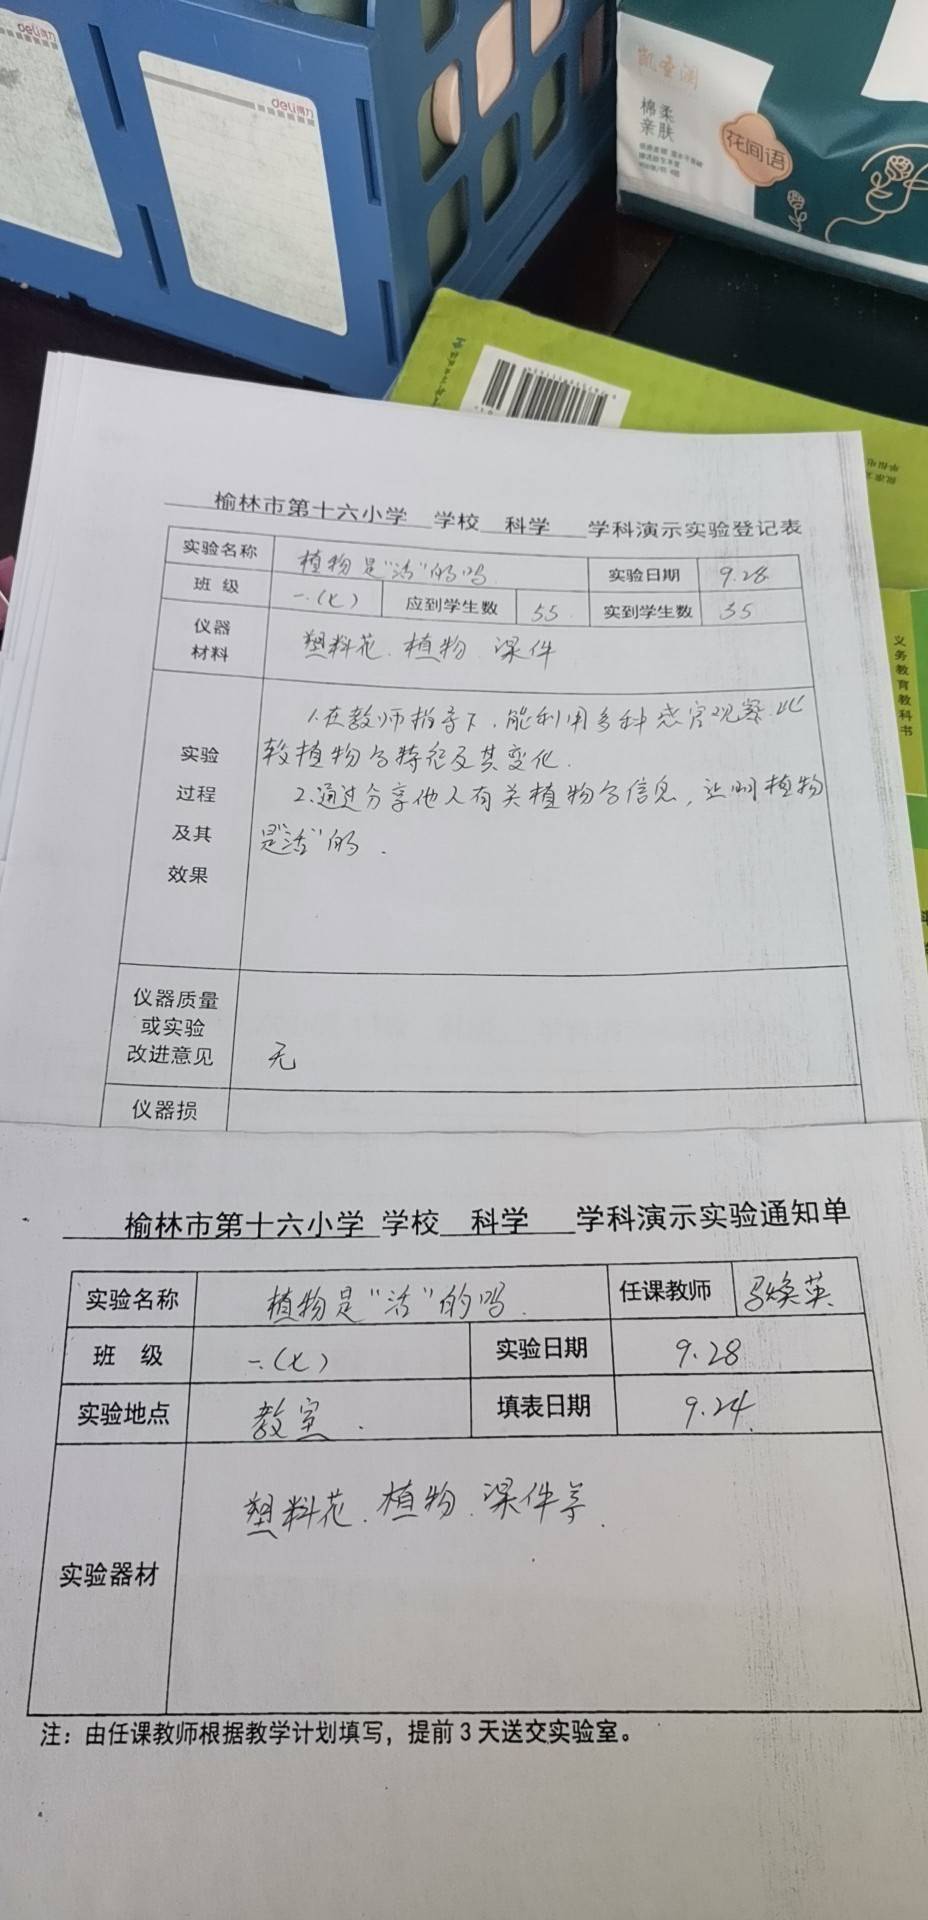 deli得力
deli得力
凯圣润
棉柔
亲肤
花间语
义务教育教科书
榆林市第十六小学 学校 科学 学科演示实验登记表
实验名称 植物是“活”的吗 实验日期 9.28
班 级 一.(七) 应到学生数 55 实到学生数 55
仪器
材料 塑料花、植物、课件
实验
过程
及其
效果
1.在教师指导下,能利用多种感官观察、比
较植物的特征及其变化.
2.通过分享他人有关植物的信息,证明植物
是“活”的.
仪器质量
或实验
改进意见 无
仪器损
榆林市第十六小学 学校 科学 学科演示实验通知单
实验名称 植物是“活”的吗. 任课教师 焕英
班 级 一.(七) 实验日期 9.28
实验地点 教室. 填表日期 9.24
实验器材 塑料花、植物、课件等.
注：由任课教师根据教学计划填写，提前3天送交实验室。